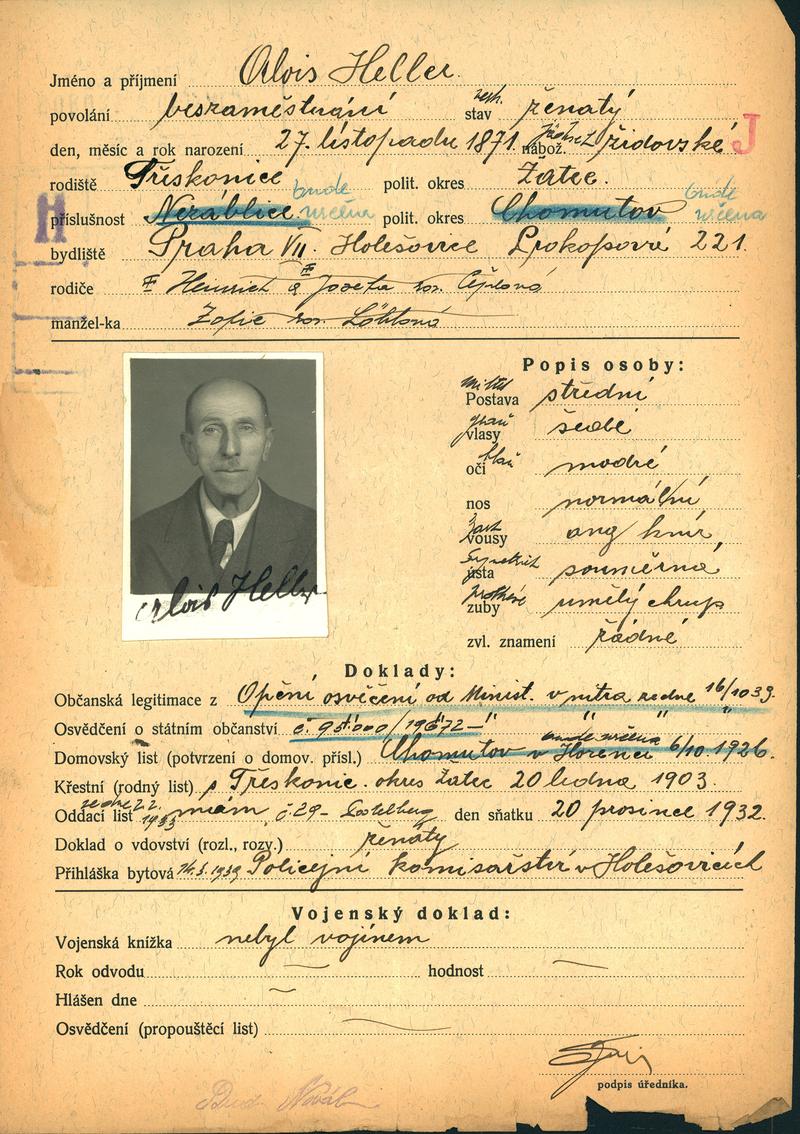 Jméno a příjmení Alois Heller.
povolání bezzaměstnání stav ženatý
den, měsíc a rok narození 27. listopadu 1871. nábož. židovské J
rodiště Třeskonice polit. okres Žatec.
bude bude
příslušnost Nezáblice určena polit. okres Chomutov určena
H
bydliště Praha VII. Holešovice Prokopova 221.
rodiče Heinrich a Josefa roz.
manžel-ka Žofie roz. Löblová
Popis osoby:
mittel
Postava střední
grau
vlasy šedé
blau
oči modré
nos normální
vousy ang knír,
ústa souměrná
zuby umělý chrup
zvl. znamení žádné
Alois Heller
Doklady:
Občanská legitimace z od Minist. v nitra ze dne 16/10 39.
Osvědčení o státním občanství č
Domovský list (potvrzení o domov. přísl.) Chomutov v 6/10. 1926.
Křestní (rodný list) Třeskonic. okres Žatec 20 ledna 1903.
Oddací list č. 29 - den sňatku 20 prosince 1932.
Doklad o vdovství (rozl., rozv.) ženatý
Přihláška bytová 1939 Policejní komisařství v Holešovicích
Vojenský doklad:
Vojenská knížka nebyl vojínem
Rok odvodu hodnost
Hlášen dne
Osvědčení (propouštěcí list)
podpis úředníka.